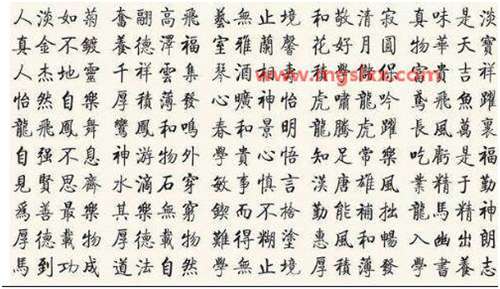 人淡如菊 奮翮高飛 藝無止境 和敬清寂 真味是淡
真金不鍍 養德澤福 室雅蘭馨 花好月圓 物華天寶
人杰地靈 千祥雲集 琴酒相 富貴吉祥
怡然自樂 厚積薄發 心曠神怡 虎嘯龍吟 鳶飛魚躍
龍飛鳳舞 鸞鳳和鳴 春和景明 龍騰虎躍 長風萬裏
自强不息 神游物外 學貴心悟 知足常樂 吃虧是福
見賢思齊 水滴石穿 敏事慎言 漢唐雄風 業精于勤
爲善最樂 其樂無窮 鍥而不捨 勤能補拙 龍馬精神
厚德載物 厚德載物 難得糊塗 惠風和暢 入幽出朗
馬到功成 道法自然 學無止境 厚積薄發 學書養志